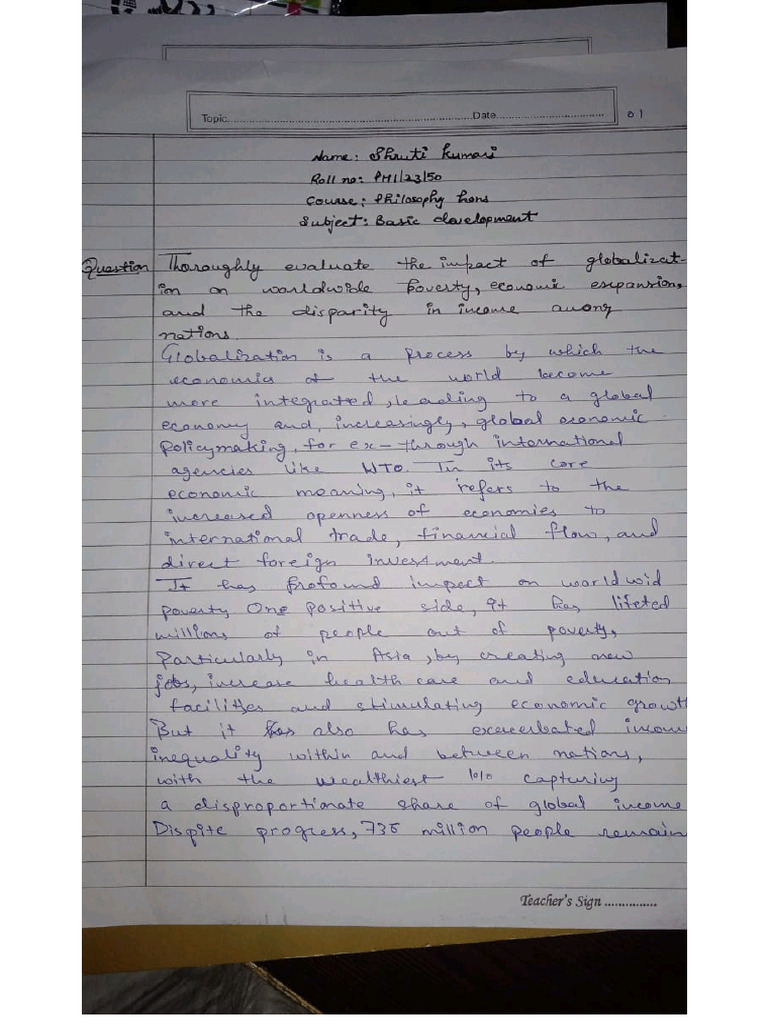 Topic..........Date.......... 01
Name: Shruti Kumari
Roll no: PHI/23/50
Course: Philosophy hons
Subject: Basic development
Question Thoroughly evaluate the impact of globalizat-
ion on worldwide Poverty, economic expansion,
and the disparity in income among
nations.
Globalization is a process by which the
economics of the world become
more integrated, leading to a global
economy and, increasingly, global economic
Policymaking, for ex- through international
agencies like WTO. In its core
economic meaning, it refers to the
increased openness of economies to
international trade, financial flow, and
direct foreign investment.
It has profound impact on world wid
poverty One positive side, it has lifeted
millions of people out of poverty,
Particularly in Asia, by creating new
jobs, increase health care and education
facilities and stimulating economic growth
But it also has exacerbated incom
inequality within and between nations,
with the wealthiest 10% capturing
a disproportionate share of global income
Dispite progress, 736 million people remain
Teacher's Sign ...............